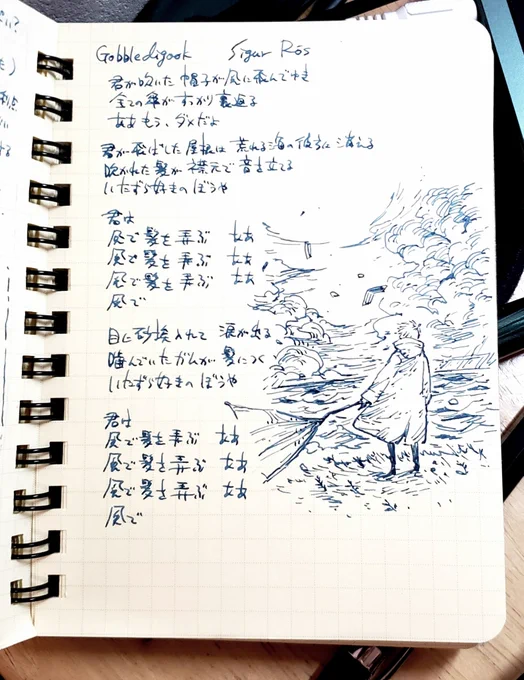 Gobbledigook Sigur Rós
君が吹いた 帽子が風に飛んでゆき
全ての傘が すっかり裏返る
ああ もう、ダメだよ
君が飛ばした 屋根は 荒れる海の彼方に消える
吹かれた髪が 襟元で 音を立てる
いたずら好きの ぼうや
君は
風で髪を弄ぶ ああ
風で髪を弄ぶ ああ
風で髪を弄ぶ ああ
風で
目に砂埃入れて 涙が出る
噛んでいたガムが 髪につく
いたずら好きの ぼうや
君は
風で髪を弄ぶ ああ
風で髪を弄ぶ ああ
風で髪を弄ぶ ああ
風で